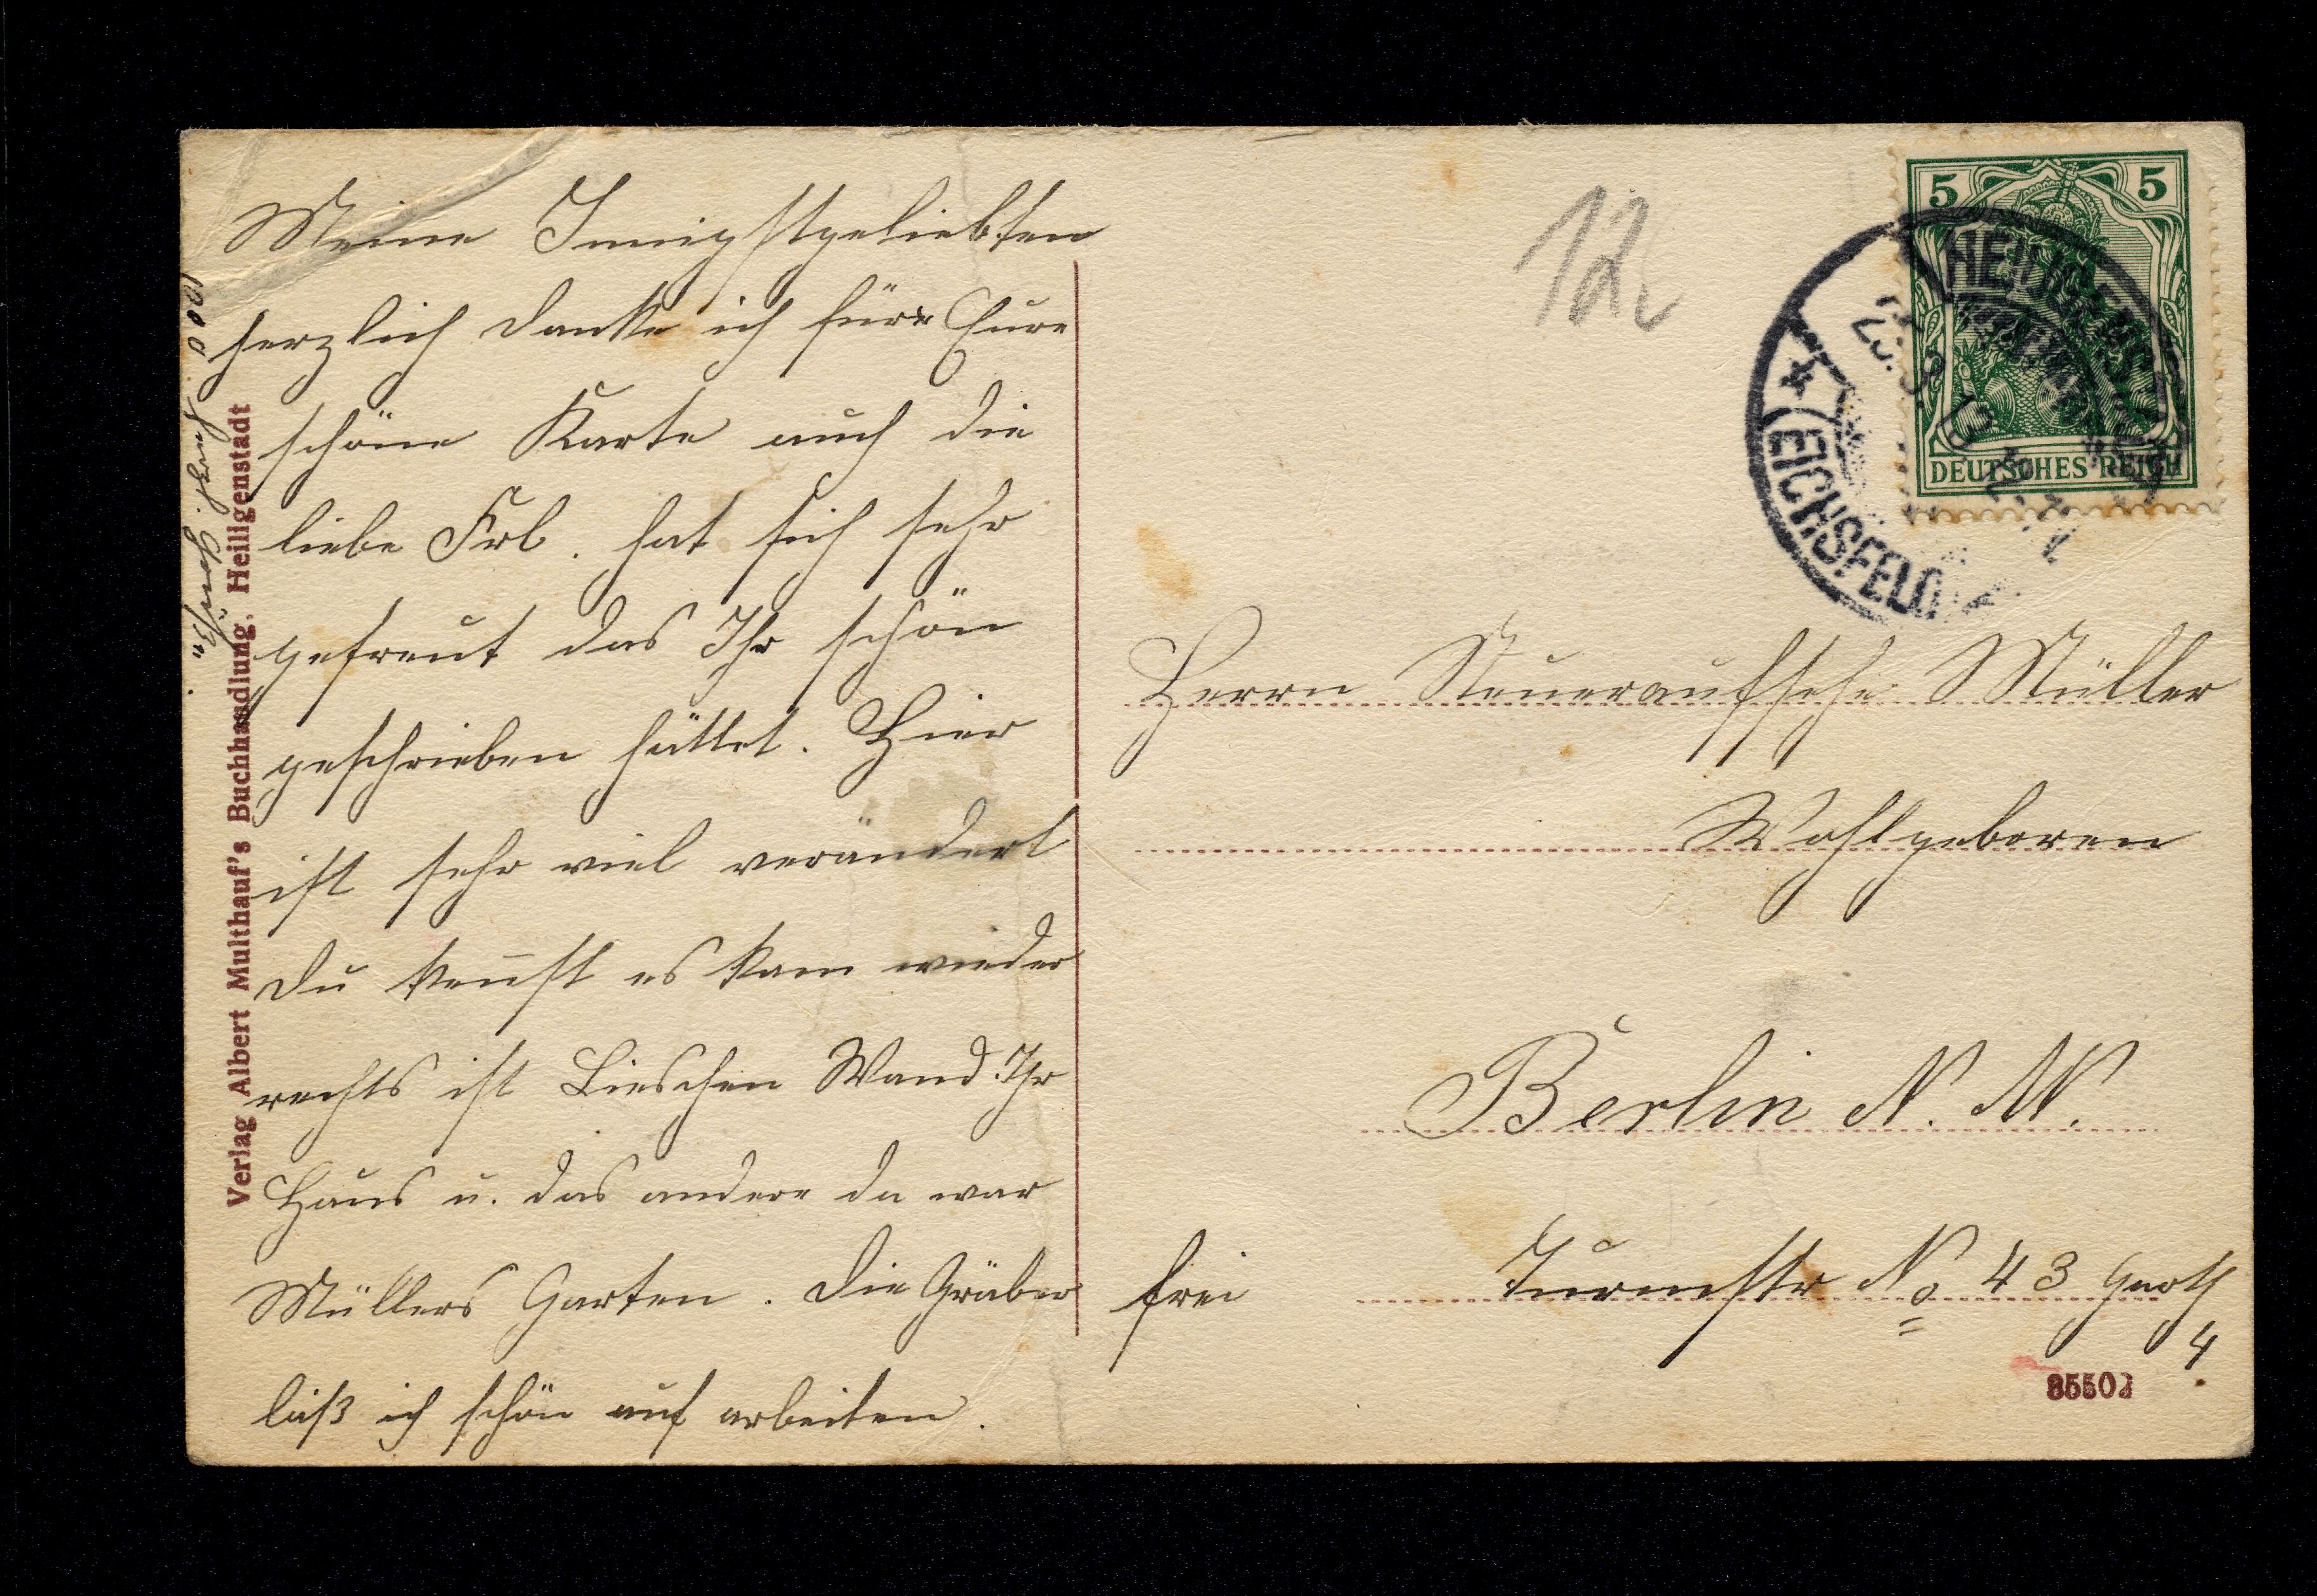 Meine Innigstgeliebten
herzlich danke ich für Eure
schöne Karte auch die
liebe Frl. hat sich sehr
gefreut das Ihr schön
geschrieben hättet. Hier
ist sehr viel verändert
Du kennst es kam wieder
rechts ist Lieschen Wand Ihr
Haus u. das andere da war
Müllers Garten. Die Gräber
laß ich schön auf arbeiten.
1000 herzl. Grüße
Verlag Albert Multhauf's Buchhandlung, Heiligenstadt
12
5 5
DEUTSCHES REICH
HEILIGENST
(EICHSFELD)
Herrn Steueraufsehe Müller
Wohlgeboren
Berlin N. W.
frei
Turmstr No 43
4.